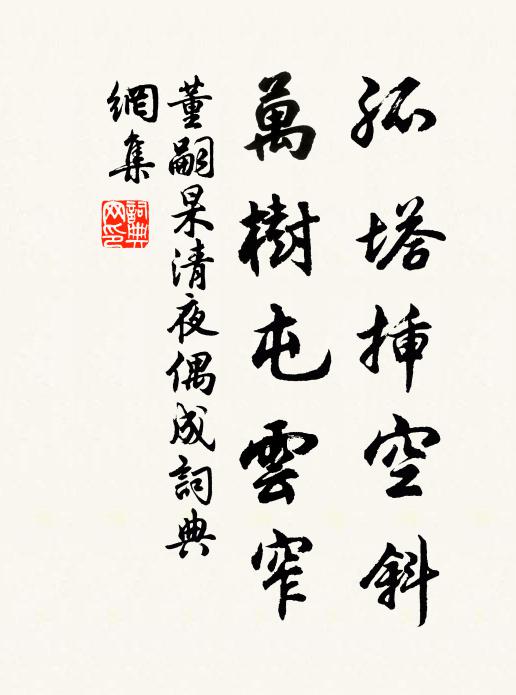 孤塔挿空斜
萬樹屯雲窄
董嗣杲清夜偶成詞典
網集
詞典
网印